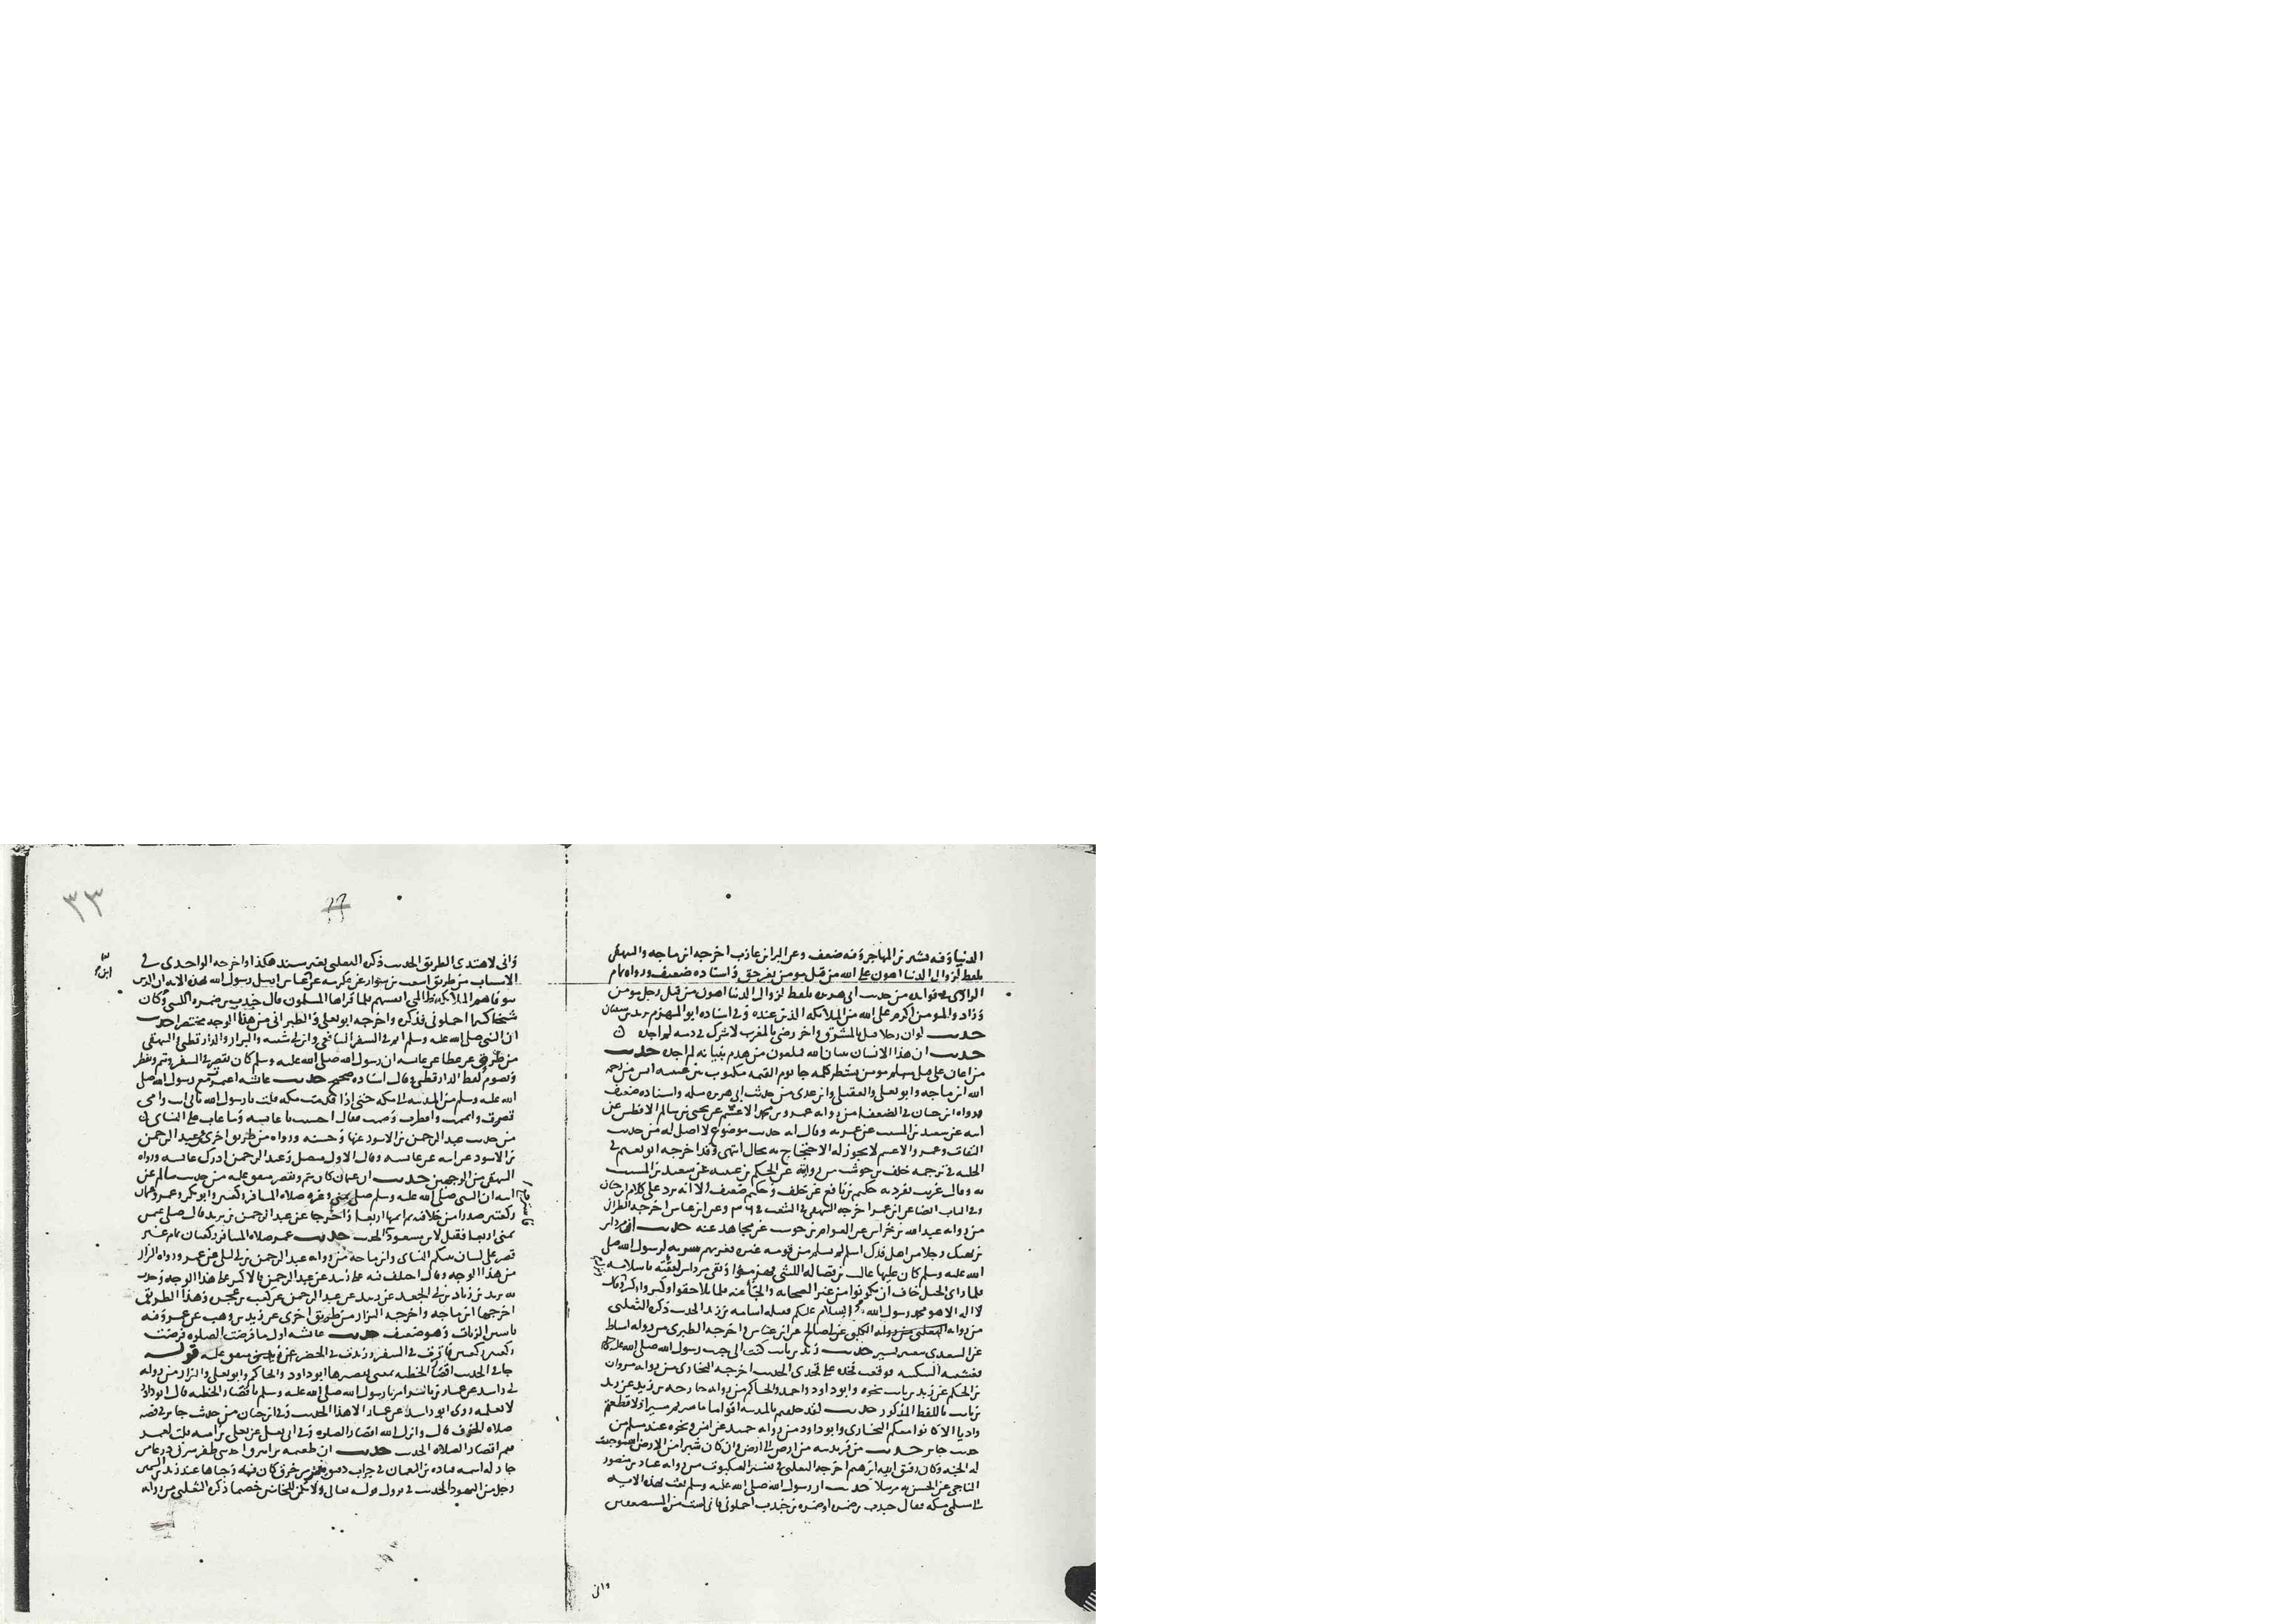 الدنيا وفه بشير بن المهاجر وفه ضعف وعن البرا بن عازب اخرجه ابن ماجه والبيهقي
بلفظ لزوال الدنيا اهون على الله من قتل مومن بغير حق واسناده ضعيف ورواه تمام
الرازي في فوايده من حديث ابي هريره بلفظ لزوال الدنيا اهون من قتل رجل مومن
وزاد والمومن اكرم على الله من الملايكه الذين عنده وفي اسناده ابو المهزم يزيد بن سفيان
حديث لو ان رجلا قتل بالمشرق واخر رضي بالمغرب لاشرك في دمه لم اجده
حديث ان هذا الانسان بنيان الله ملعون من هدم بنيانه لم اجده حديث
من اعان على قتل مسلم مومن بشطر كلمه جا يوم القيمه مكتوب بين عينيه ايس من رحمه
الله ابن ماجه وابو يعلى والعقيلي وابن عدي من حديث ابي هريره مثله واسناده ضعيف
ورواه ابن حبان في الضعفا من روايه عمرو بن محمد الاعسم عن يحيى بن سالم الافطس عن
ابيه عن سعيد بن المسيب عن عمر به وقال انه حديث موضوع لا اصل له من حديث
الثقات وعمرو الاعسم لا يجوز له الاحتجاج به بحال انتهى وقد اخرجه ابو نعيم في
الحليه في ترجمه خلف بن حوشب من روايته عن الحكم بن عتيبه عن سعيد بن المسيب
به وقال غريب تفرد به حكيم بن نافع عن خلف وحكيم ضعيف الا انه يرد على كلام ابن حبان
وفي الباب ايضا عن ابن عمر اخرجه البيهقي في الشعب في وعن ابن عباس اخرجه الطبراني
من روايه عبد الله بن خراش عن العوام بن حوشب عن مجاهد عنه حديث ان مرداس
بن نهيك رجلا من اهل فدك اسلم لم يسلم من قومه غيره فغزتهم سريه لرسول الله صلى
الله عليه وسلم كان عليها غالب بن فضاله الليثي فهربوا وبقي مرداس لثقته باسلامه
فلما راى الخيل خاف ان يكونوا من غير الصحابه والجا غنمه فلما تلاحقوا وكبروا كبر وقال
لا اله الا هو محمد رسول الله السلام عليكم فقتله اسامه بن زيد الحديث ذكره الثعلبي
من روايه الكلبي عن ابي صالح عن ابن عباس واخرجه الطبري من روايه اسباط
عن السدي حديث زيد بن ثابت كنت الى جنب رسول الله صلى الله عليه
فغشيته السكينه فوقعت فخذه على فخذي الحديث اخرجه البخاري من روايه مروان
بن الحكم عن زيد بن ثابت نحوه وابو داود واحمد والحاكم من روايه خارجه بن زيد عن زيد
بن ثابت باللفظ المذكور حديث لقد خلفتم بالمدينه اقواما ما سرتم مسيرا ولا قطعتم
واديا الا كانوا معكم البخاري وابو داود من روايه حميد عن انس ونحوه عند مسلم من
حديث جابر حديث من فر بدينه من ارض الى ارض وان كان شبرا من الارض استوجبت
له الجنه وكان رفيق ابيه ابرهيم اخرجه الثعلبي في تفسير العنكبوت من روايه عباد بن منصور
الناجي عن الحسن به مرسلا حديث ان رسول الله صلى الله عليه وسلم بعث بهذه الايه
الى مسلمي مكه فقال جندب بن ضمره او ضمره بن جندب احملوني فاني لست من المستضعفين
واني
٣٣
واني لاهتدي الطريق الحديث ذكره الثعلبي بغير سند هكذا واخرجه الواحدي في
الاسباب من طريق اشعث بن سوار عن عكرمه عن ابن عباس ارسل رسول الله بهذه الايه ان الذين
توفاهم الملايكه ظالمي انفسهم فلما قراها المسلمون قال جندب بن ضمره الليثي وكان
شيخا كبيرا احملوني فذكره واخرجه ابو يعلى والطبراني من هذا الوجه مختصرا حديث
ان النبي صلى الله عليه وسلم اتم في السفر الشافعي وابن ابي شيبه والبزار والدارقطني والبيهقي
من طريق عن عطا عن عايشه ان رسول الله صلى الله عليه وسلم كان يقصر في السفر ويتم ويفطر
ويصوم لفظ الدارقطني وقال اسناده صحيح حديث عايشه اعتمرت مع رسول الله صلى
الله عليه وسلم من المدينه الى مكه حتى اذا قدمت مكه قلت يا رسول الله بابي انت وامي
قصرت واتممت وافطرت وصمت فقال احسنت يا عايشه وما عاب علي النساي
من حديث عبد الرحمن بن الاسود عنها وحسنه ورواه من طريق اخرى عن عبد الرحمن
بن الاسود عن ابيه عن عايشه وقال الاول متصل وعبد الرحمن ادرك عايشه ورواه
البيهقي من الوجهين حديث ان عثمان كان يتم ويقصر متفق عليه من حديث سالم عن
ابيه ان النبي صلى الله عليه وسلم صلى بمنى وغيره صلاه المسافر ركعتين وابو بكر وعمر وعثمان
ركعتين صدرا من خلافته ثم اتمها اربعا واخرجا عن عبد الرحمن بن يزيد قال صلى عثمن
بمنى اربعا فقيل لابن مسعود الحديث حديث عمر صلاه المسافر ركعتان تمام غير
قصر على لسان نبيكم النساي وابن ماجه من روايه عبد الرحمن بن ابي ليلى عن عمر ورواه البزار
من هذا الوجه وقال اختلف فيه على زبيد عن عبد الرحمن
به يزيد بن زياد بن ابي الجعد عن زبيد عن عبد الرحمن عن كعب بن عجره وهذا الطريق
اخرجها ابن ماجه واخرجه البزار من طريق اخرى عن زيد بن وهب عن عمر وفيه
ياسين الزيات وهو ضعيف حديث عايشه اول ما فرضت الصلوه فرضت
ركعتين ركعتين فاقرت في السفر وزيدت في الحضر متفق عليه قوله
جا في الحديث اقصار الخطبه بمعنى تقصيرها ابو داود والحاكم وابو يعلى والبزار من روايه
ابي راشد عن عمار بن ياسر امرنا رسول الله صلى الله عليه وسلم باقصار الخطبه قال البزار
لا نعلمه روى ابو راشد عن عمار الا هذا الحديث وفي ابن حبان من حديث جابر في قصه
صلاه الخوف قال وانزل الله اقصار الصلوه وفي ابي يعلى عن يعلى بن اميه قلت لعمر
فيم اقصار الصلاه الحديث حديث ان طعمه بن ابيرق احد بني ظفر سرق درعا من
جار له اسمه قتاده بن النعمان في جراب دقيق من خرق كان فيه وخباها عند زيد بن السمين
رجل من اليهود الحديث في نزول قوله تعالى ولا تكن للخاينين خصيما ذكره الثعلبي من روايه